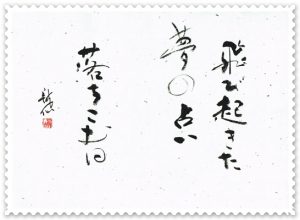 飛び起きた
夢の占い
落ちこむ日